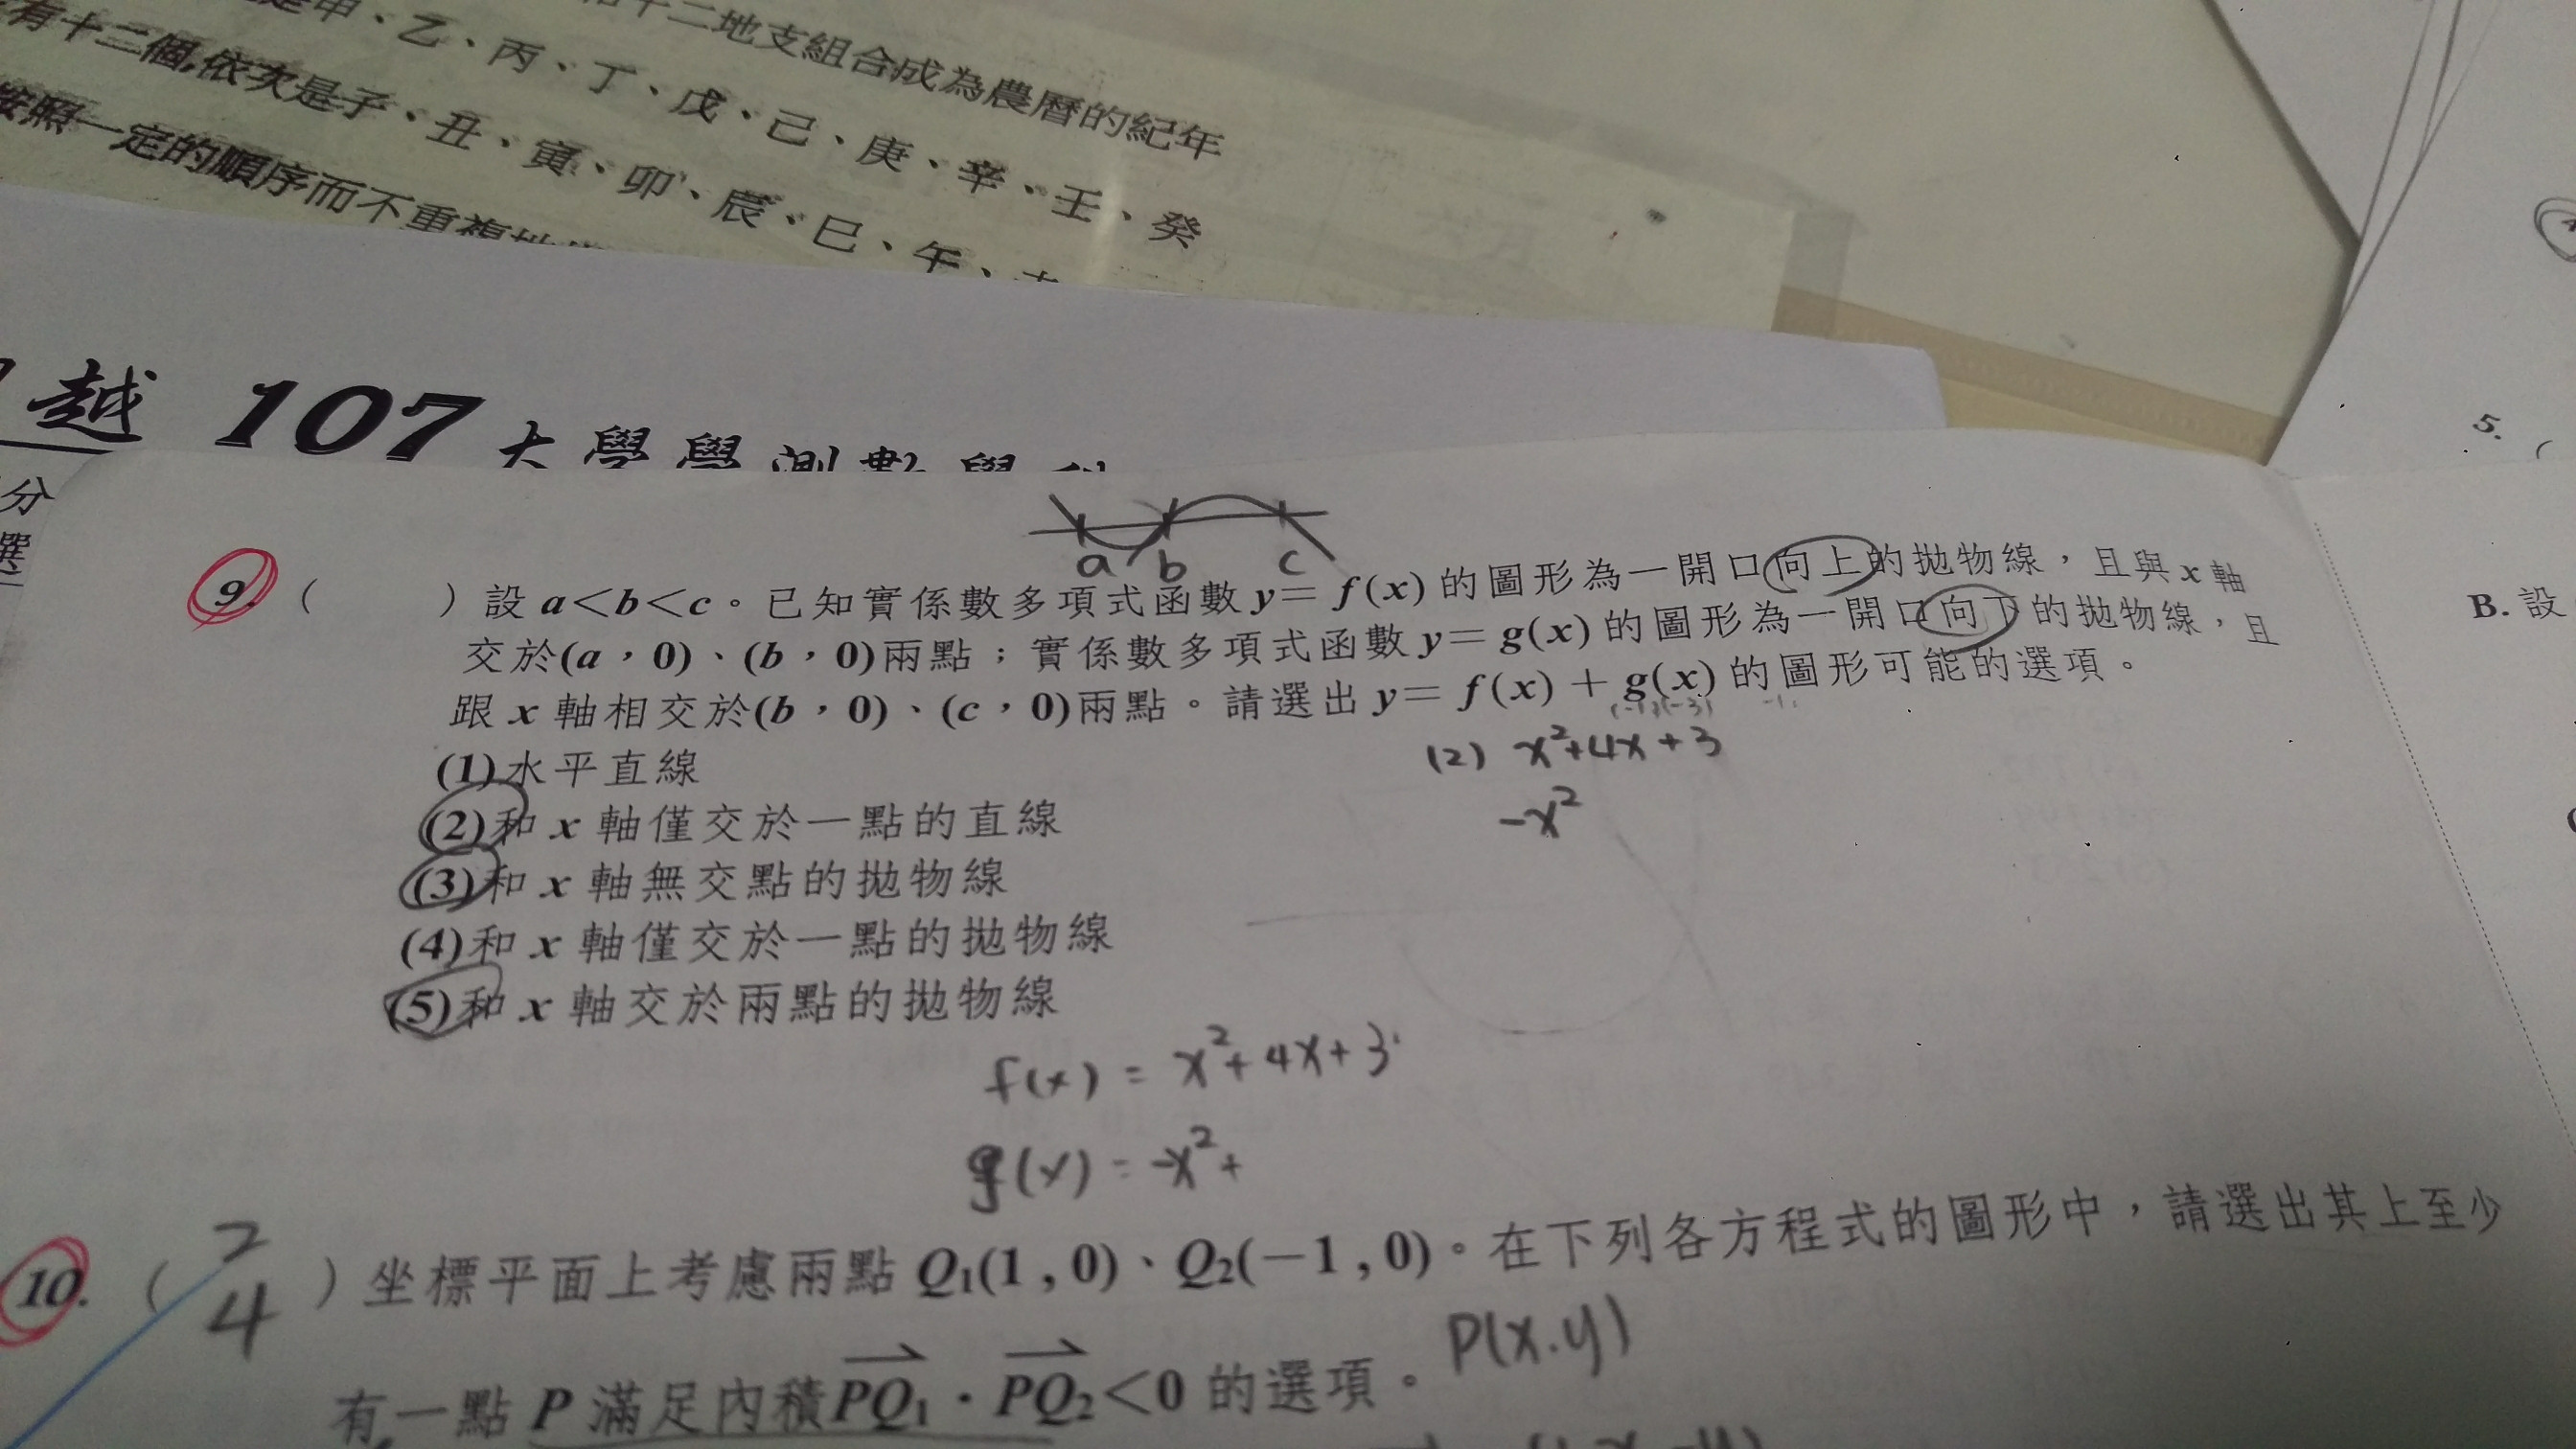 十二地支組合成為農曆的紀年
甲、乙、丙、丁、戊、己、庚、辛、壬、癸
有十二個,依次是子、丑、寅、卯、辰、巳、午、
按照一定的順序而不重複
越 107 大學學測數學科
分
選
a b c
9. ( )設 a<b<c。已知實係數多項式函數 y= f(x) 的圖形為一開口向上的拋物線，且與 x 軸
交於(a，0)、(b，0)兩點；實係數多項式函數 y= g(x) 的圖形為一開口向下的拋物線，且
跟 x 軸相交於(b，0)、(c，0)兩點。請選出 y= f(x) + g(x) 的圖形可能的選項。
(1)水平直線
(2)和 x 軸僅交於一點的直線
(3)和 x 軸無交點的拋物線
(4)和 x 軸僅交於一點的拋物線
(5)和 x 軸交於兩點的拋物線
(2) x²+4x+3
-x²
f(x) = x²+4x+3
g(x) = -x²+
10. ( 2 4 )坐標平面上考慮兩點 Q₁(1 , 0)、Q₂(−1 , 0)。在下列各方程式的圖形中，請選出其上至少
有一點 P 滿足內積PQ₁ · PQ₂<0 的選項。 P(x.y)
5. (
B. 設